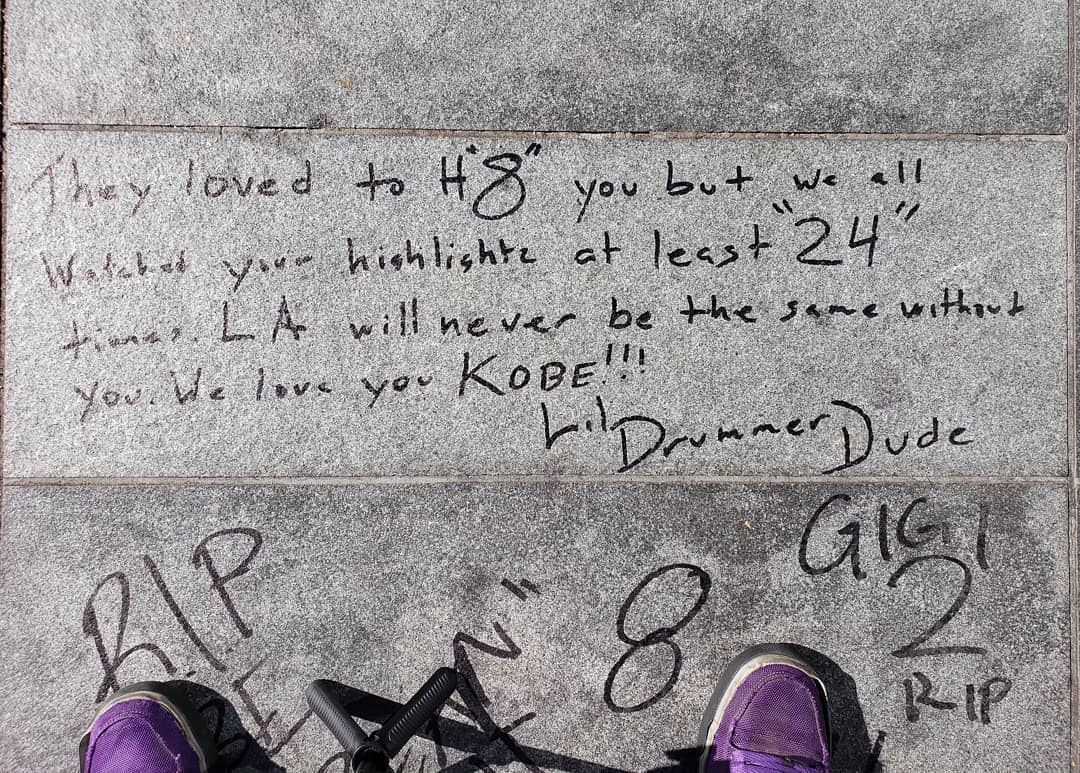 They loved to H"8" you but we all
Watched your highlightz at least "24"
times. LA will never be the same without
you. We love you KOBE!!!
Lil Drummer Dude
R.I.P
8
GIGI
2
RIP